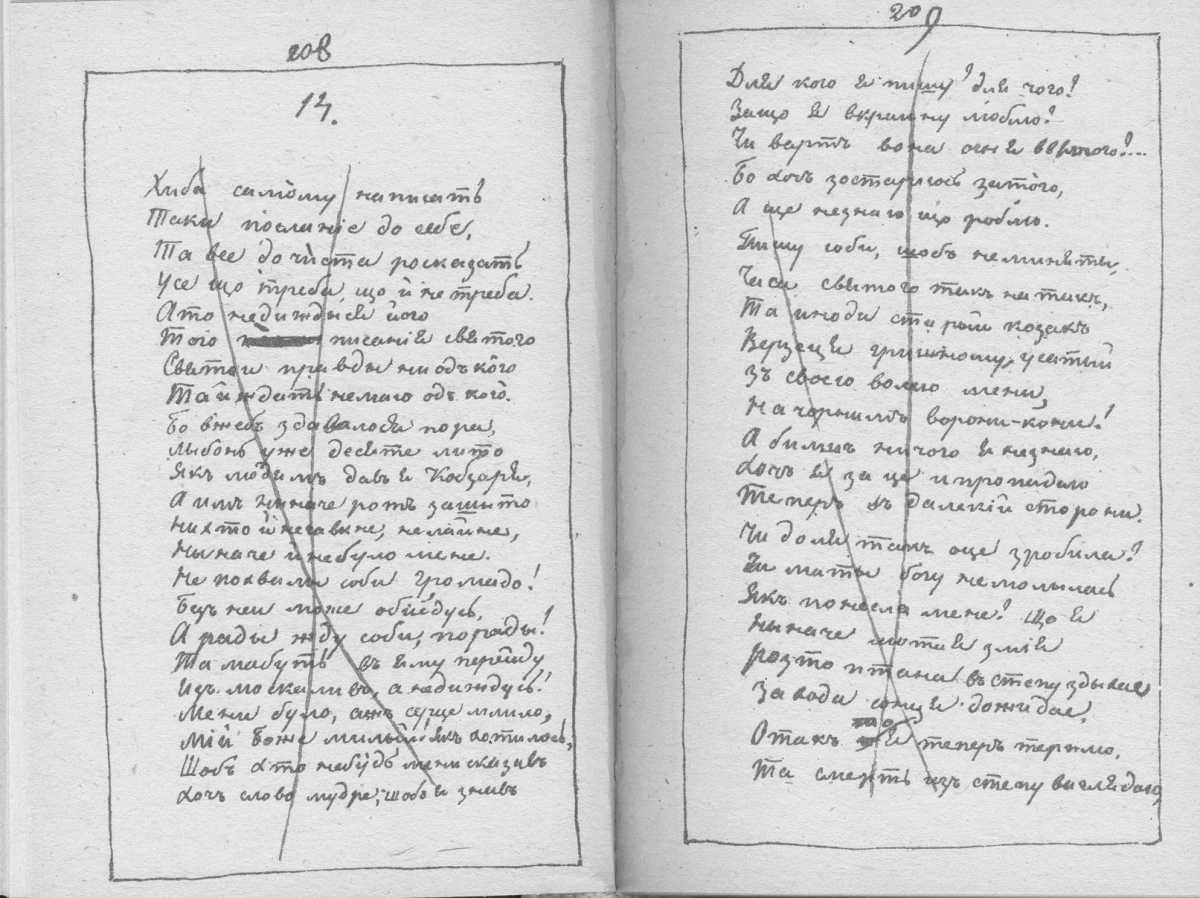 208
14.
Хиба самому написать
Таки посланіе до себе,
Та все дочиста росказать
Усе що треба, що й не треба.
А то недиждесся його
Того писанія святого
Святои правды ни одъ кого
Та й ждать немаю одъ кого.
Бо вжебъ здавалося пора,
Мабуть уже десяте лито
Якъ людямъ давъ я Кобзаря,
А имъ неначе ротъ зашыто
Нихто й негавкне, нелайне,
Неначе й небуло мене.
Не похвалы соби громадо!
Безъ неи може обійдусь,
А рады жду соби, порады!
Та мабуть въ яму перейду
Изъ москаливъ, а недиждусь!
Мени було, ажъ серце млило,
Мій Боже милый! якъ хотилось,
Щобъ хто небудь мени сказавъ
Хочъ слово мудре; щобъ я знавъ
209
Для кого я пишу? для чого?
Защо я вкраину люблю?
Чи вартъ вона огня святого?...
Бо хочъ зостарiюсь затого,
А ще незнаю що роблю.
Пишу соби, щобъ неминяты,
Часа святого такъ на такъ,
Та иноди старый козакъ
Верзеця гришному, усатый
Зъ своею волею мени,
На чорнимъ ворони-кони!
А бильшъ ничого я незнаю,
Хочъ я за це и пропадаю
Теперъ въ далекій сторони.
Чи доля такъ оце зробила?
Чи маты богу немолылась
Якъ понесла мене? Що я
Неначе лютая змія
Розтоптана въ степу здыхае
Захода сонця дожидае,
Отакъ то я теперъ терплю,
Та смерть изъ степу выглядаю,